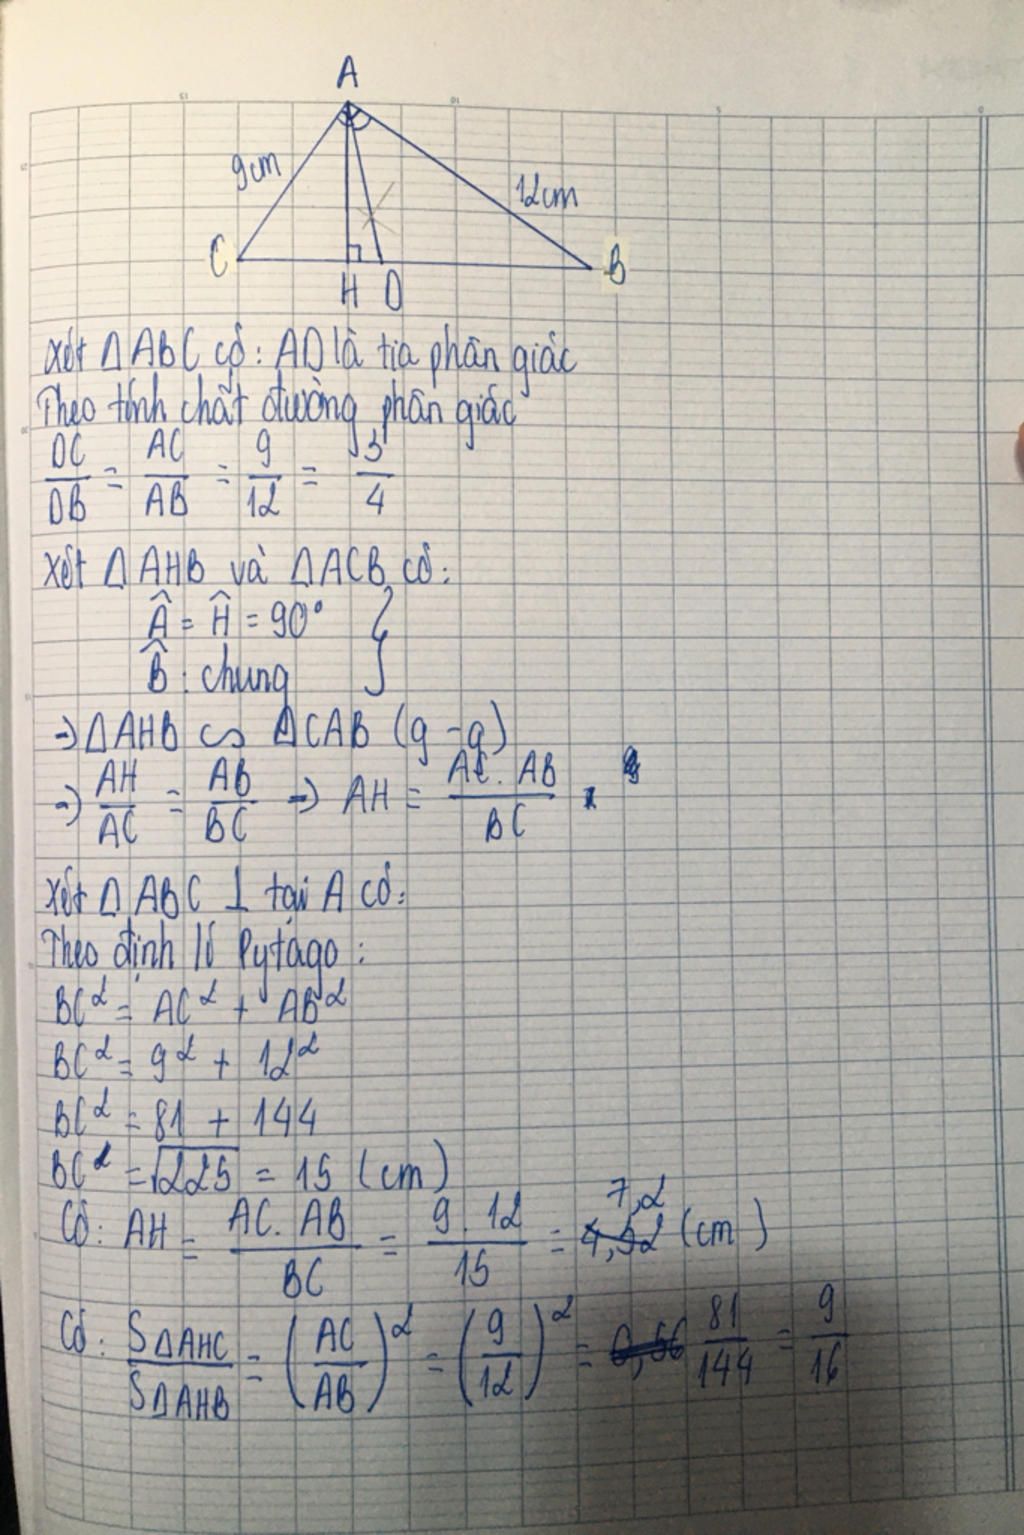 A
9cm
12cm
C
B
H D
Xét ΔABC có: AD là tia phân giác
Theo tính chất đường phân giác
DC/DB = AC/AB = 9/12 = 3/4
Xét ΔAHB và ΔACB có:
Â = Ĥ = 90°
B̂: chung
⇒ ΔAHB ∽ ΔCAB (g-g)
⇒ AH/AC = AB/BC ⇒ AH = AC. AB/BC
Xét ΔABC ⊥ tại A có:
Theo định lí Pytago:
BC² = AC² + AB²
BC² = 9² + 12²
BC² = 81 + 144
BC² = √225 = 15 (cm)
Có: AH = AC. AB/BC = 9.12/15 = 7,2 (cm)
Có: SΔAHC/SΔAHB = (AC/AB)² = (9/12)² = 81/144 = 9/16